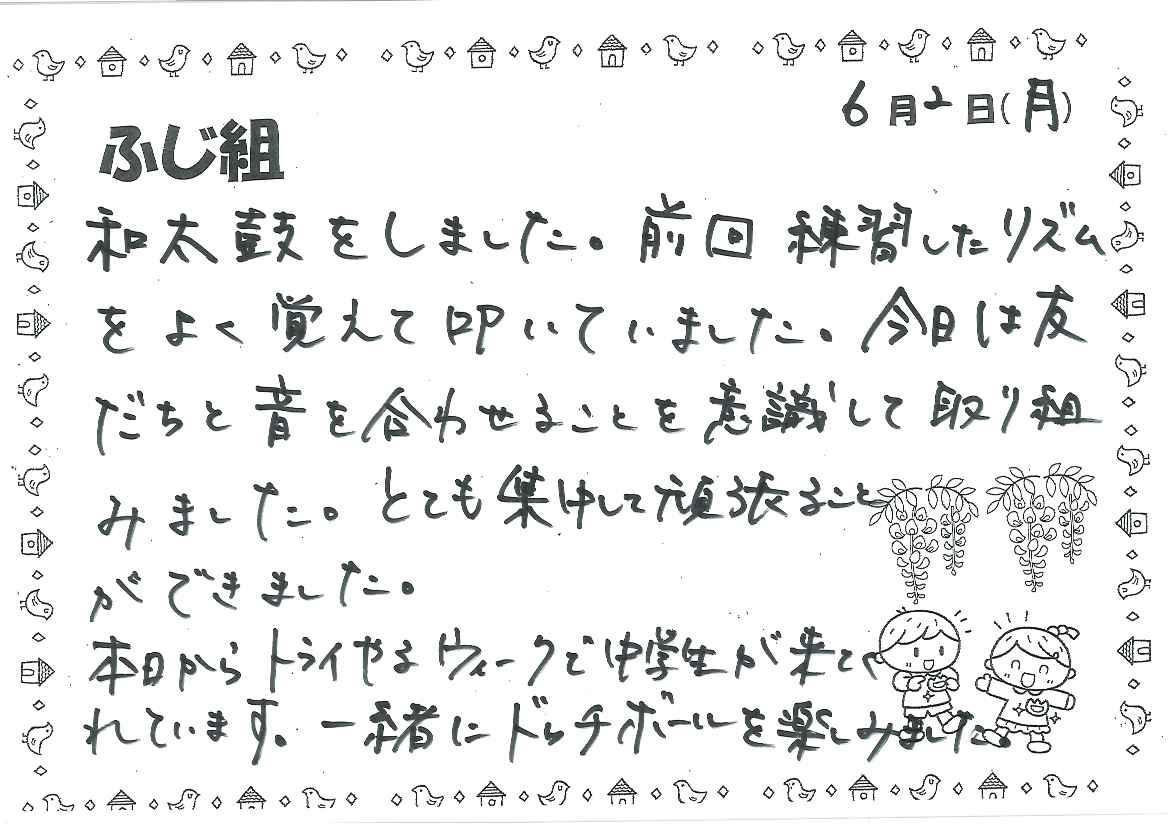 6月2日(月)
ふじ組
和太鼓をしました。前回練習したリズム
をよく覚えて叩いていました。今日は友
だちと音を合わせることを意識して取り組
みました。とても集中して頑張ること
ができました。
本日からトライやるウィークで中学生が来てく
れています。一緒にドッチボールを楽しみました。